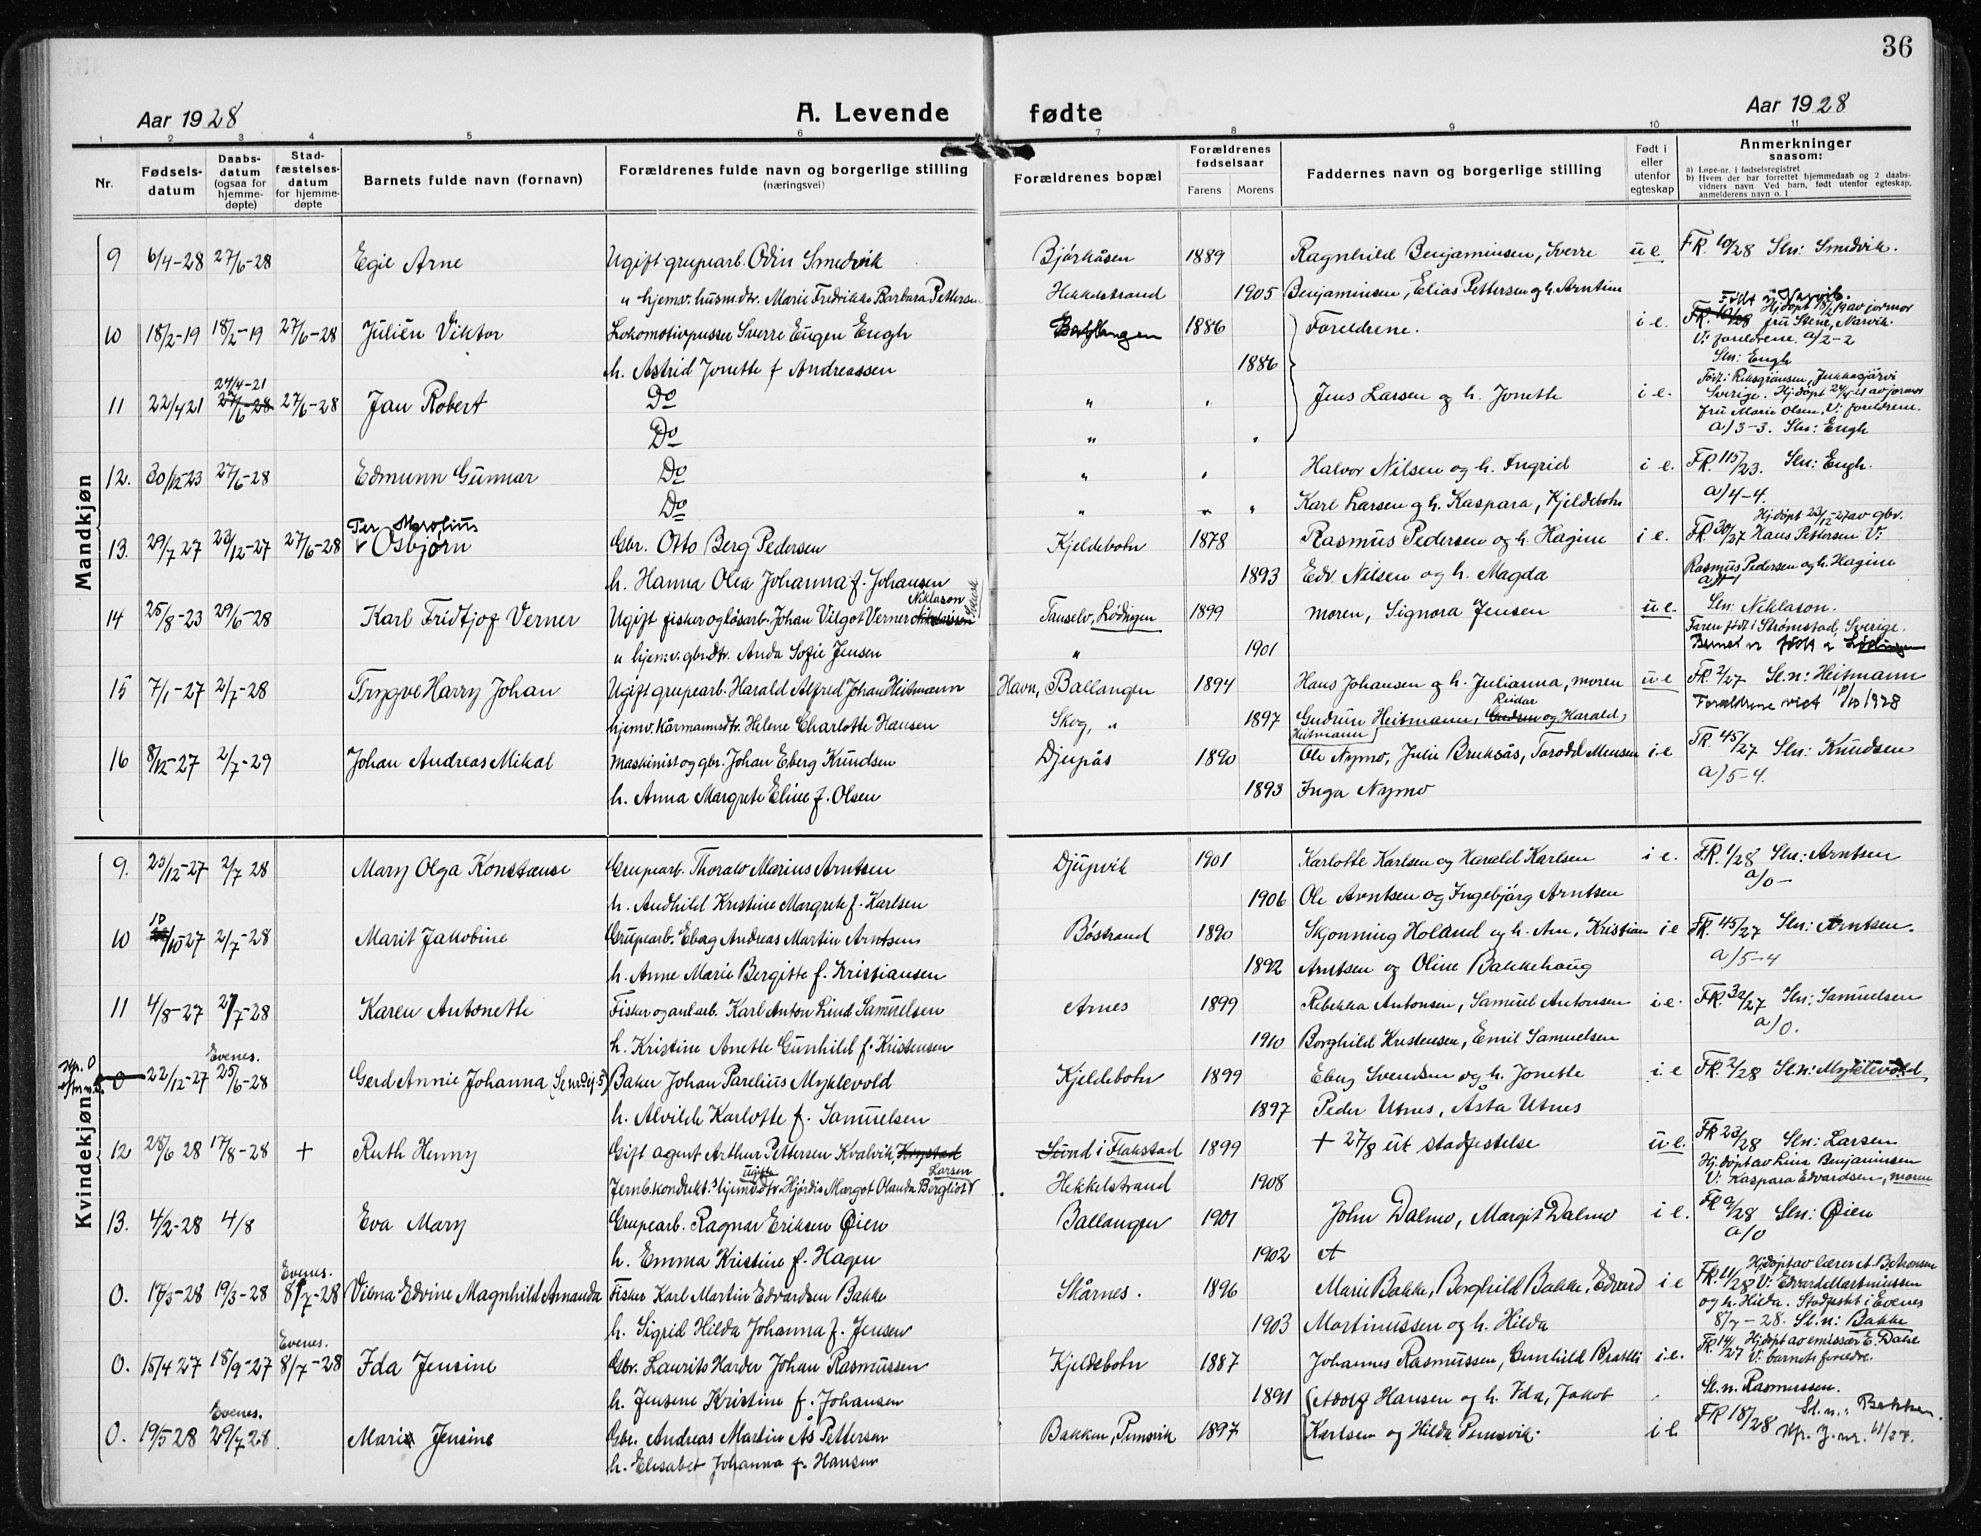 36
Aar 1928
A. Levende fødte
Aar 1928
1 2 3 4 5 6 7 8 9 10 11
Nr.
Fødsels-datum
Daabs-datum (ogsaa for hjemme-døpte)
Stad-fæstelses-datum for hjemme-døpte
Barnets fulde navn (fornavn)
Forældrenes fulde navn og borgerlige stilling (næringsvei)
Forældrenes bopæl
Forældrenes fødselsaar
Farens Morens
Faddernes navn og borgerlige stilling
Født i eller utenfor egteskap
Anmerkninger saasom:
a) Løpe-nr. i fødselsregistret
b) Hvem der har forrettet hjemmedaab og 2 daabs-vidners navn Ved barn, født utenfor egteskap, anmelderens navn o. l
Mandkjøn
9 6/4-28 27/6-28 Egil Arne Ugift grupearb. Odin Smedvik Bjørkåsen 1889 Ragnhild Benjaminsen, Sverre u e FR. 10/28 Sln: Smedvik.
" hjemv. husm.dtr. Marie Fredrikke Barbara Pettersen Hekkelstrand 1905 Benjaminsen, Elias Pettersen og h. Arntine
10 18/2-19 18/2-19 27/6-28 Julién Viktor Lokomotivpusser Sverre Eugen Engh Ballangen 1886 Foreldrene. i e. Født i Narvik. Hj.døpt 18/2 19 av jormor
fru Stene, Narvik.
V: foreldrene. a/2-2
h. Astrid Jonette f Andreassen 1886 Sln: Engh
11 22/4 21 24/4-21 27/6-28 27/6-28 Jan Robert Do " " Jens Larsen og h. Jonette i e. Født i Riksgränsen, Jukkasjärvi
Sverige. Hj.døpt 24/4 21 av jormor
fru Marie Olsen. V: foreldrene.
Do " " a/3-3. Sln: Engh
12. 30/12-23 27/6-28 Edmunn Gunnar Do " " Halvor Nilsen og h. Ingrid i e. FR. 115/23. Sln: Engh.
Do " " " Karl Larsen og h. Kaspara, Kjeldebotn a/4-4.
13. 29/7 27 23/12-27 27/6-28 Per Marelius Osbjørn Gbr. Otto Berg Pedersen Kjeldebotn 1878 Rasmus Pedersen og h. Hagine i e. Hj.døpt 23/12-27 av gbr.
FR. 30/27 Hans Pettersen V:
h. Hanna Olea Johanna f. Johansen 1893 Edv. Nilsen og h. Magda Rasmus Pedersen og h. Hagine
14 25/8-23 29/6-28 Karl Fridtjof Verner Ugift fisker og løsarb. Johan Vilgot Verner Niklason Tanselv, Lødingen 1899 moren, Signora Jensen u e. Sln: Niklason.
Faren født i Strømstad, Sverige.
" hjemv. gbrdtr. Anda Sofie Jensen " 1901 Barnet er født i Lødingen
15 7/1-27 2/7-28 Trygve Harry Johan Ugift grupearb. Harald Alfred Johan Heitmann Havn, Ballangen 1894 Hans Johansen og h. Julianna, moren u e FR. 2/27 Sl.n: Heitmann
hjemv. kårmannsdtr. Helene Charlotte Hansen Skog, " 1897 Gudrun Heitmann, Reidar og Harald Heitmann Forældrene viet 18/10 1928
16 8/12-27 2/7-29 Johan Andreas Mikal Maskinist og gbr. Johan Eberg Knudsen Djupås 1890 Ole Nymo, Julie Bruksås, Torodd Monsen i e FR. 45/27 Sln: Knudsen
h. Anna Margrete Eline f. Olsen 1893 Inga Nymo a/5-4.
Kvindekjøn
9. 25/12-27 2/7 28 Mary Olga Konstanse Grupearb. Thoralv Marius Arntsen Djupvik 1901 Karlotte Karlsen og Harald Karlsen i e. FR. 1/28 Sln: Arntsen
h. Andhild Kristine Margrete f. Karlsen 1906 Ole Arntsen og Ingebjørg Arntsen a/0-
10 18/10-27 2/7-28 Marit Jakobine Grupearb. Eberg Andreas Martin Arntsen Bøstrand 1890 Skjonning Holand og h. Ann, Kristian i e FR. 45/27 Sln: Arntsen.
h. Anne Marie Bergitte f. Kristiansen 1892 Arntsen og Oline Bakkehaug a/5-4
11 4/8-27 2/7-28 Karen Antonette Fisker og anl.arb. Karl Anton Lind Samuelsen Arnes 1899 Rebekka Antonsen, Samuel Antonsen i e. FR. 32/27 Sln: Samuelsen
h. Kristine Anette Gunhild f. Kristensen 1910 Borghild Kristensen, Emil Samuelsen a/0.
0 22/12-27 Evenes. 25/6-28 Gerd Annie Johanna Baker Johan Parelius Myklevold Kjeldebotn 1899 Eberg Svendsen og h. Jonette i e FR. 2/28 Sl.n: Myklevold
h. Alvilde Karlotte f. Samuelsen 1897 Peder Utnes, Åsta Utnes
12 28/6 28 17/8-28 + Ruth Henny Gift agent Arthur Pettersen Kvalvik, Sund i Flakstad 1899 + 27/8 ut stadfestelse u e. FR 23/28 Sln: Larsen
Hj.døpt av Lina Benjaminsen
Jernb.kondukt.s hjemv. ugifte dtr. Hjørdis Margot Olanda Bergliot Larsen Hekkelstrand 1908 V: Kaspara Edvardsen, moren
13. 4/2-28 4/8 Eva Mary Grupearb. Ragnar Eriksen Øien Ballangen 1901 John Dalmo, Margit Dalmo i e. FR 9/28 Sln: Øien
h. Emma Kristine f. Hagen 1902 a/0
0. 17/3-28 19/3-28 Evenes. 8/7-28 Vilma Edvine Magnhild Amanda Fisker Karl Martin Edvardsen Bakke Skårnes. 1896 Marie Bakke, Borghild Bakke, Edvard i e Hj.døpt av lærer A. Betransen
FR. 11/28 V: Edvard Martinussen
og h. Hilda. Stadfestet i Evenes
h. Sigrid Hilda Johanna f. Jensen 1903 Martinussen og h. Hilda 8/7-28. Sl.n: Bakke
0. 15/4 27 18/9-27 Evenes. 8/7-28 Ida Jensine Gbr. Laurits Harder Johan Rasmussen Kjeldebotn 1887 Johannes Rasmussen, Gunhild Bratli i e. FR. 14/27 Hj.døpt av emissær E. Dahl
V: barnets foreldre.
h. Jensine Kristine f. Johansen 1891 Adolf Hansen og h. Ida, Jakob Sl.n. Rasmussen.
0. 19/5 28 Evenes. 29/7 28 Marie Jensine Gbr. Andreas Martin Ås Pettersen Bakken, Pumsvik 1897 Karlsen og Hilda Pomsvik. i e. FR 18/28 Sl.n.: Bakken.
h. Elisabet Johanna f. Hansen